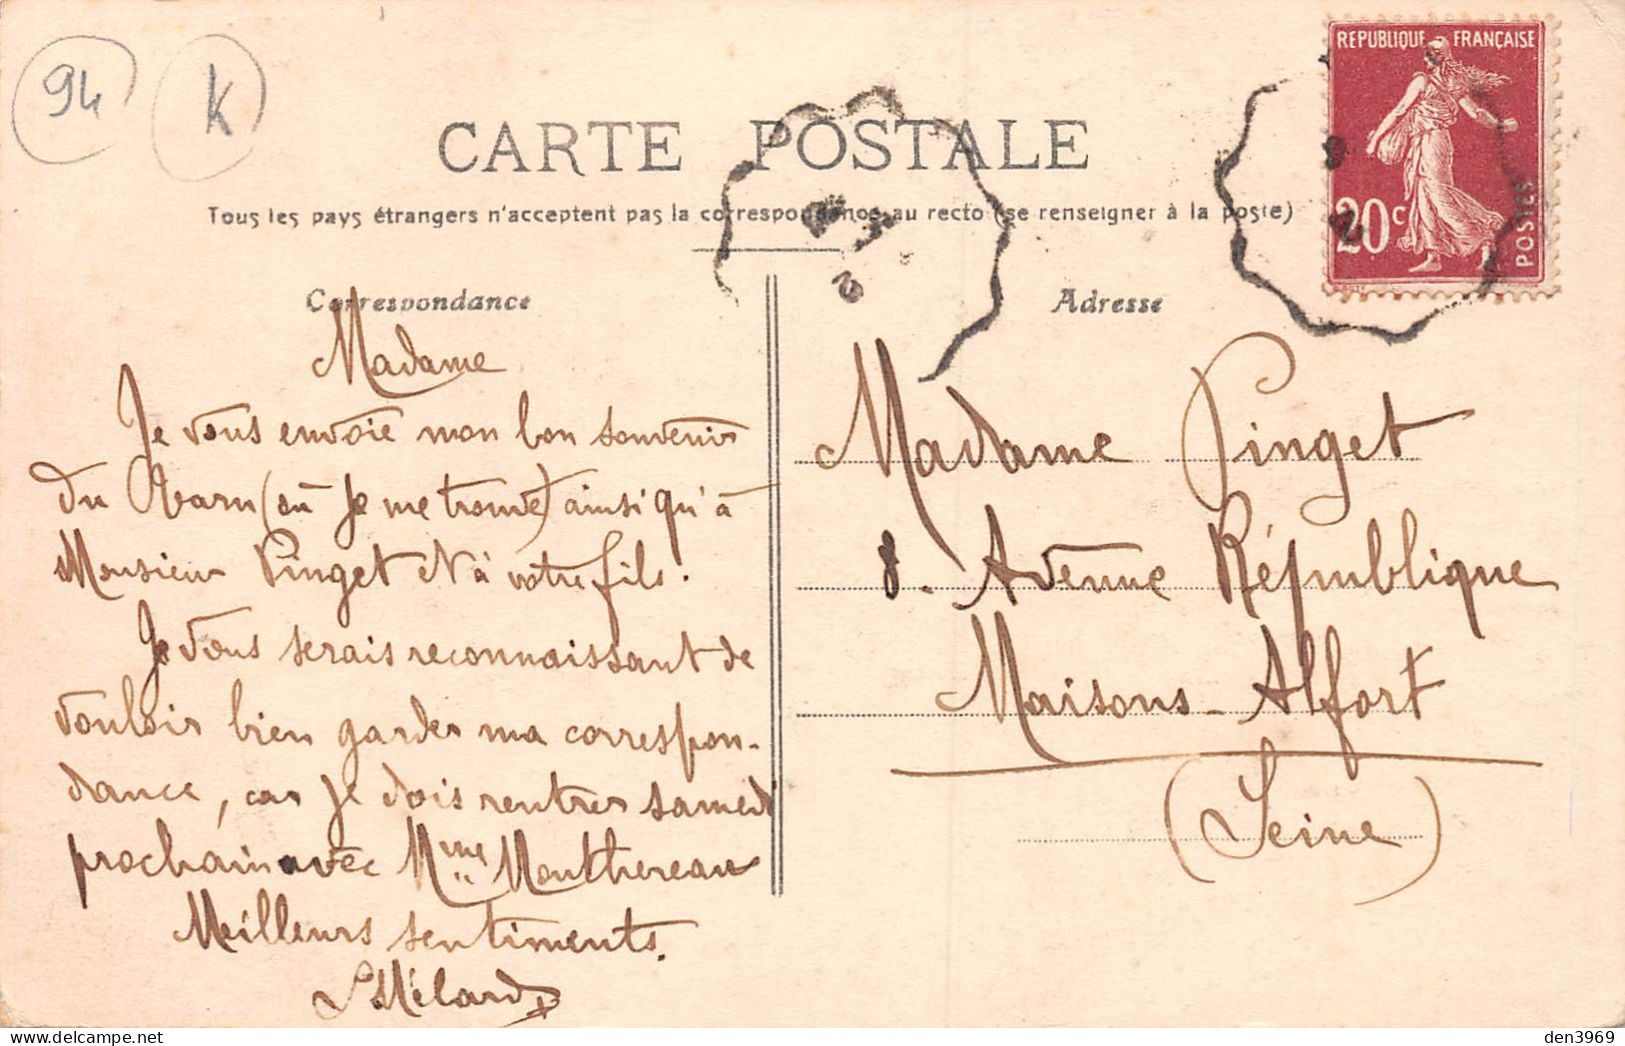 94
K
REPUBLIQUE FRANÇAISE
20c
POSTES
CARTE POSTALE
Tous les pays étrangers n'acceptent pas la correspondance au recto (se renseigner à la poste)
Correspondance
Madame
Je vous envoie mon bon souvenir
du Tarn (où je me trouve) ainsi qu'à
Monsieur Pinget et à votre fils.
Je vous serais reconnaissant de
vouloir bien garder ma correspon-
dance, car je dois rentrer samedi
prochain avec Mme Monthereau
Meilleurs sentiments.
Mélard
Adresse
Madame Pinget
8. Avenue République
Maisons-Alfort
(Seine)
den3969